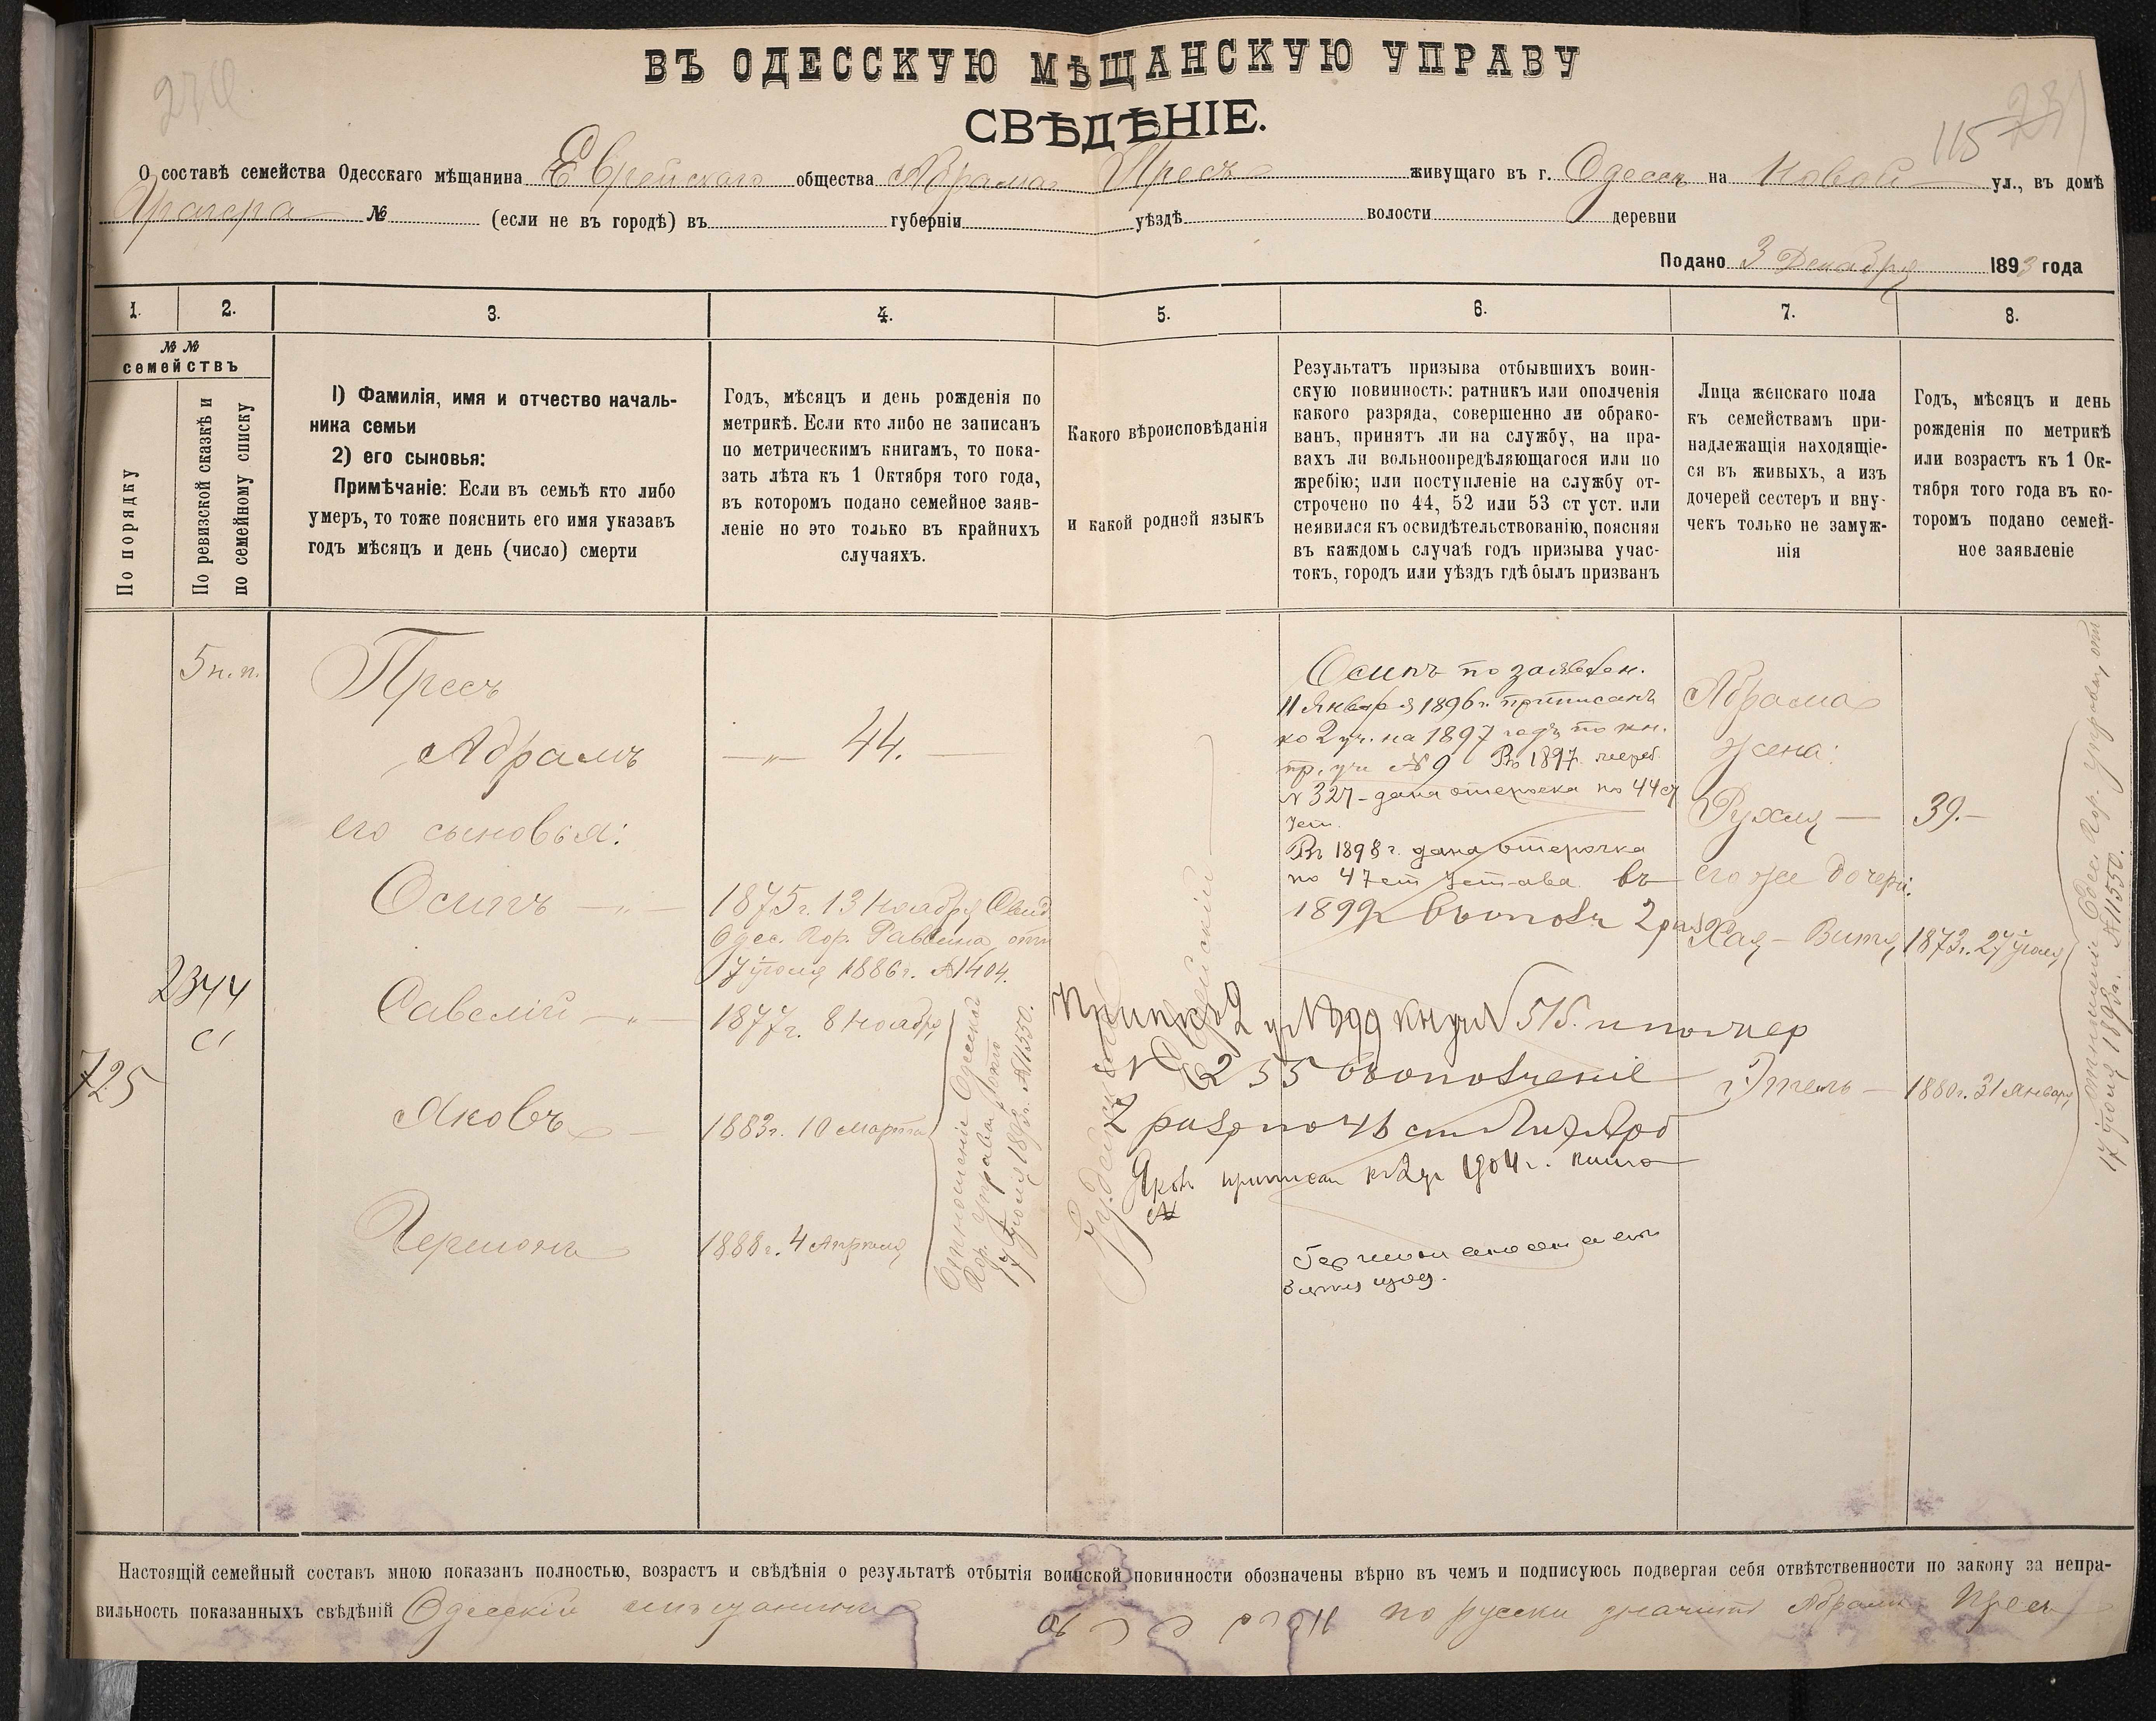 ВЪ ОДЕССКУЮ МѢЩАНСКУЮ УПРАВУ
СВѢДѢНІЕ.
115
О составѣ семейства Одесскаго мѣщанина Еврейскаго общества Абрама Пресъ живущаго въ г. Одессѣ на Новой ул., въ домѣ
№ (если не въ городѣ) въ губерніи уѣздѣ волости деревни
Подано 3 Декабря 1893 года
1. 2. 3. 4. 5. 6. 7. 8.
№ №
семействъ
По порядку
По ревизской сказкѣ и
по семейному списку
1) Фамилія, имя и отчество началь-
ника семьи
2) его сыновья:
Примѣчаніе: Если въ семьѣ кто либо
умеръ, то тоже пояснить его имя указавъ
годъ мѣсяцъ и день (число) смерти
Годъ, мѣсяцъ и день рожденія по
метрикѣ. Если кто либо не записанъ
по метрическимъ книгамъ, то пока-
зать лѣта къ 1 Октября того года,
въ которомъ подано семейное заяв-
леніе но это только въ крайнихъ
случаяхъ.
Какого вѣроисповѣданія
и какой родной языкъ
Результатъ призыва отбывшихъ воин-
скую повинность: ратникъ или ополченія
какого разряда, совершенно ли обрако-
ванъ, принятъ ли на службу, на пра-
вахъ ли вольноопредѣляющагося или по
жребію; или поступленіе на службу от-
строчено по 44, 52 или 53 ст уст. или
неявился къ освидѣтельствованію, поясняя
въ каждомъ случаѣ годъ призыва учас-
токъ, городъ или уѣздъ гдѣ былъ призванъ
Лица женскаго пола
къ семействамъ при-
надлежащія находящіе-
ся въ живыхъ, а изъ
дочерей сестеръ и вну-
чекъ только не замуж-
нія
Годъ, мѣсяцъ и день
рожденія по метрикѣ
или возрастъ къ 1 Ок-
тября того года въ ко-
торомъ подано семей-
ное заявленіе
5 н. п.
2344
725
Пресъ
Абрамъ
его сыновья:
Осипъ
Савелій
Яковъ
Германъ
44.
1875 г. 13 Ноября Свид.
Одес. Гор. Раввина отъ
17 іюля 1886 г. № 1404.
1877 г. 8 Ноября
1883 г. 10 Марта
1888 г. 4 Апрѣля
Отношеніе Одесской
Гор. Управы отъ
17 іюля 1893 г. № 11550.
Іудейскаго
Еврейскій
Осипъ по заявлен.
11 Января 1896 г. приписанъ
ко 2 уч. на 1897 годъ по кн.
пр. уч. № 9 Въ 1897 жереб.
№ 327 - дана отсрочка по 44 ст
Уст.
Въ 1898 г. дана отсрочка
по 47 ст Устава въ
1899 г.
2 уч № 399
№ 255
Яковъ приписан къ 2 уч 1904 г. книга
№
Абрама
жена:
Рухля
его же дочери:
Хая-Витя
Этель
39.
1873 г. 27 іюля
1880 г. 31 Января
Отношеніе Одес. Гор. Управы отъ
17 іюля 1893 г. № 11550.
Настоящій семейный составъ мною показанъ полностью, возрастъ и свѣдѣнія о результатѣ отбытія воинской повинности обозначены вѣрно въ чемъ и подписуюсь подвергая себя отвѣтственности по закону за непра-
вильность показанныхъ свѣдѣній Одесскій мѣщанинъ по русски значитъ Абрамъ Пресъ